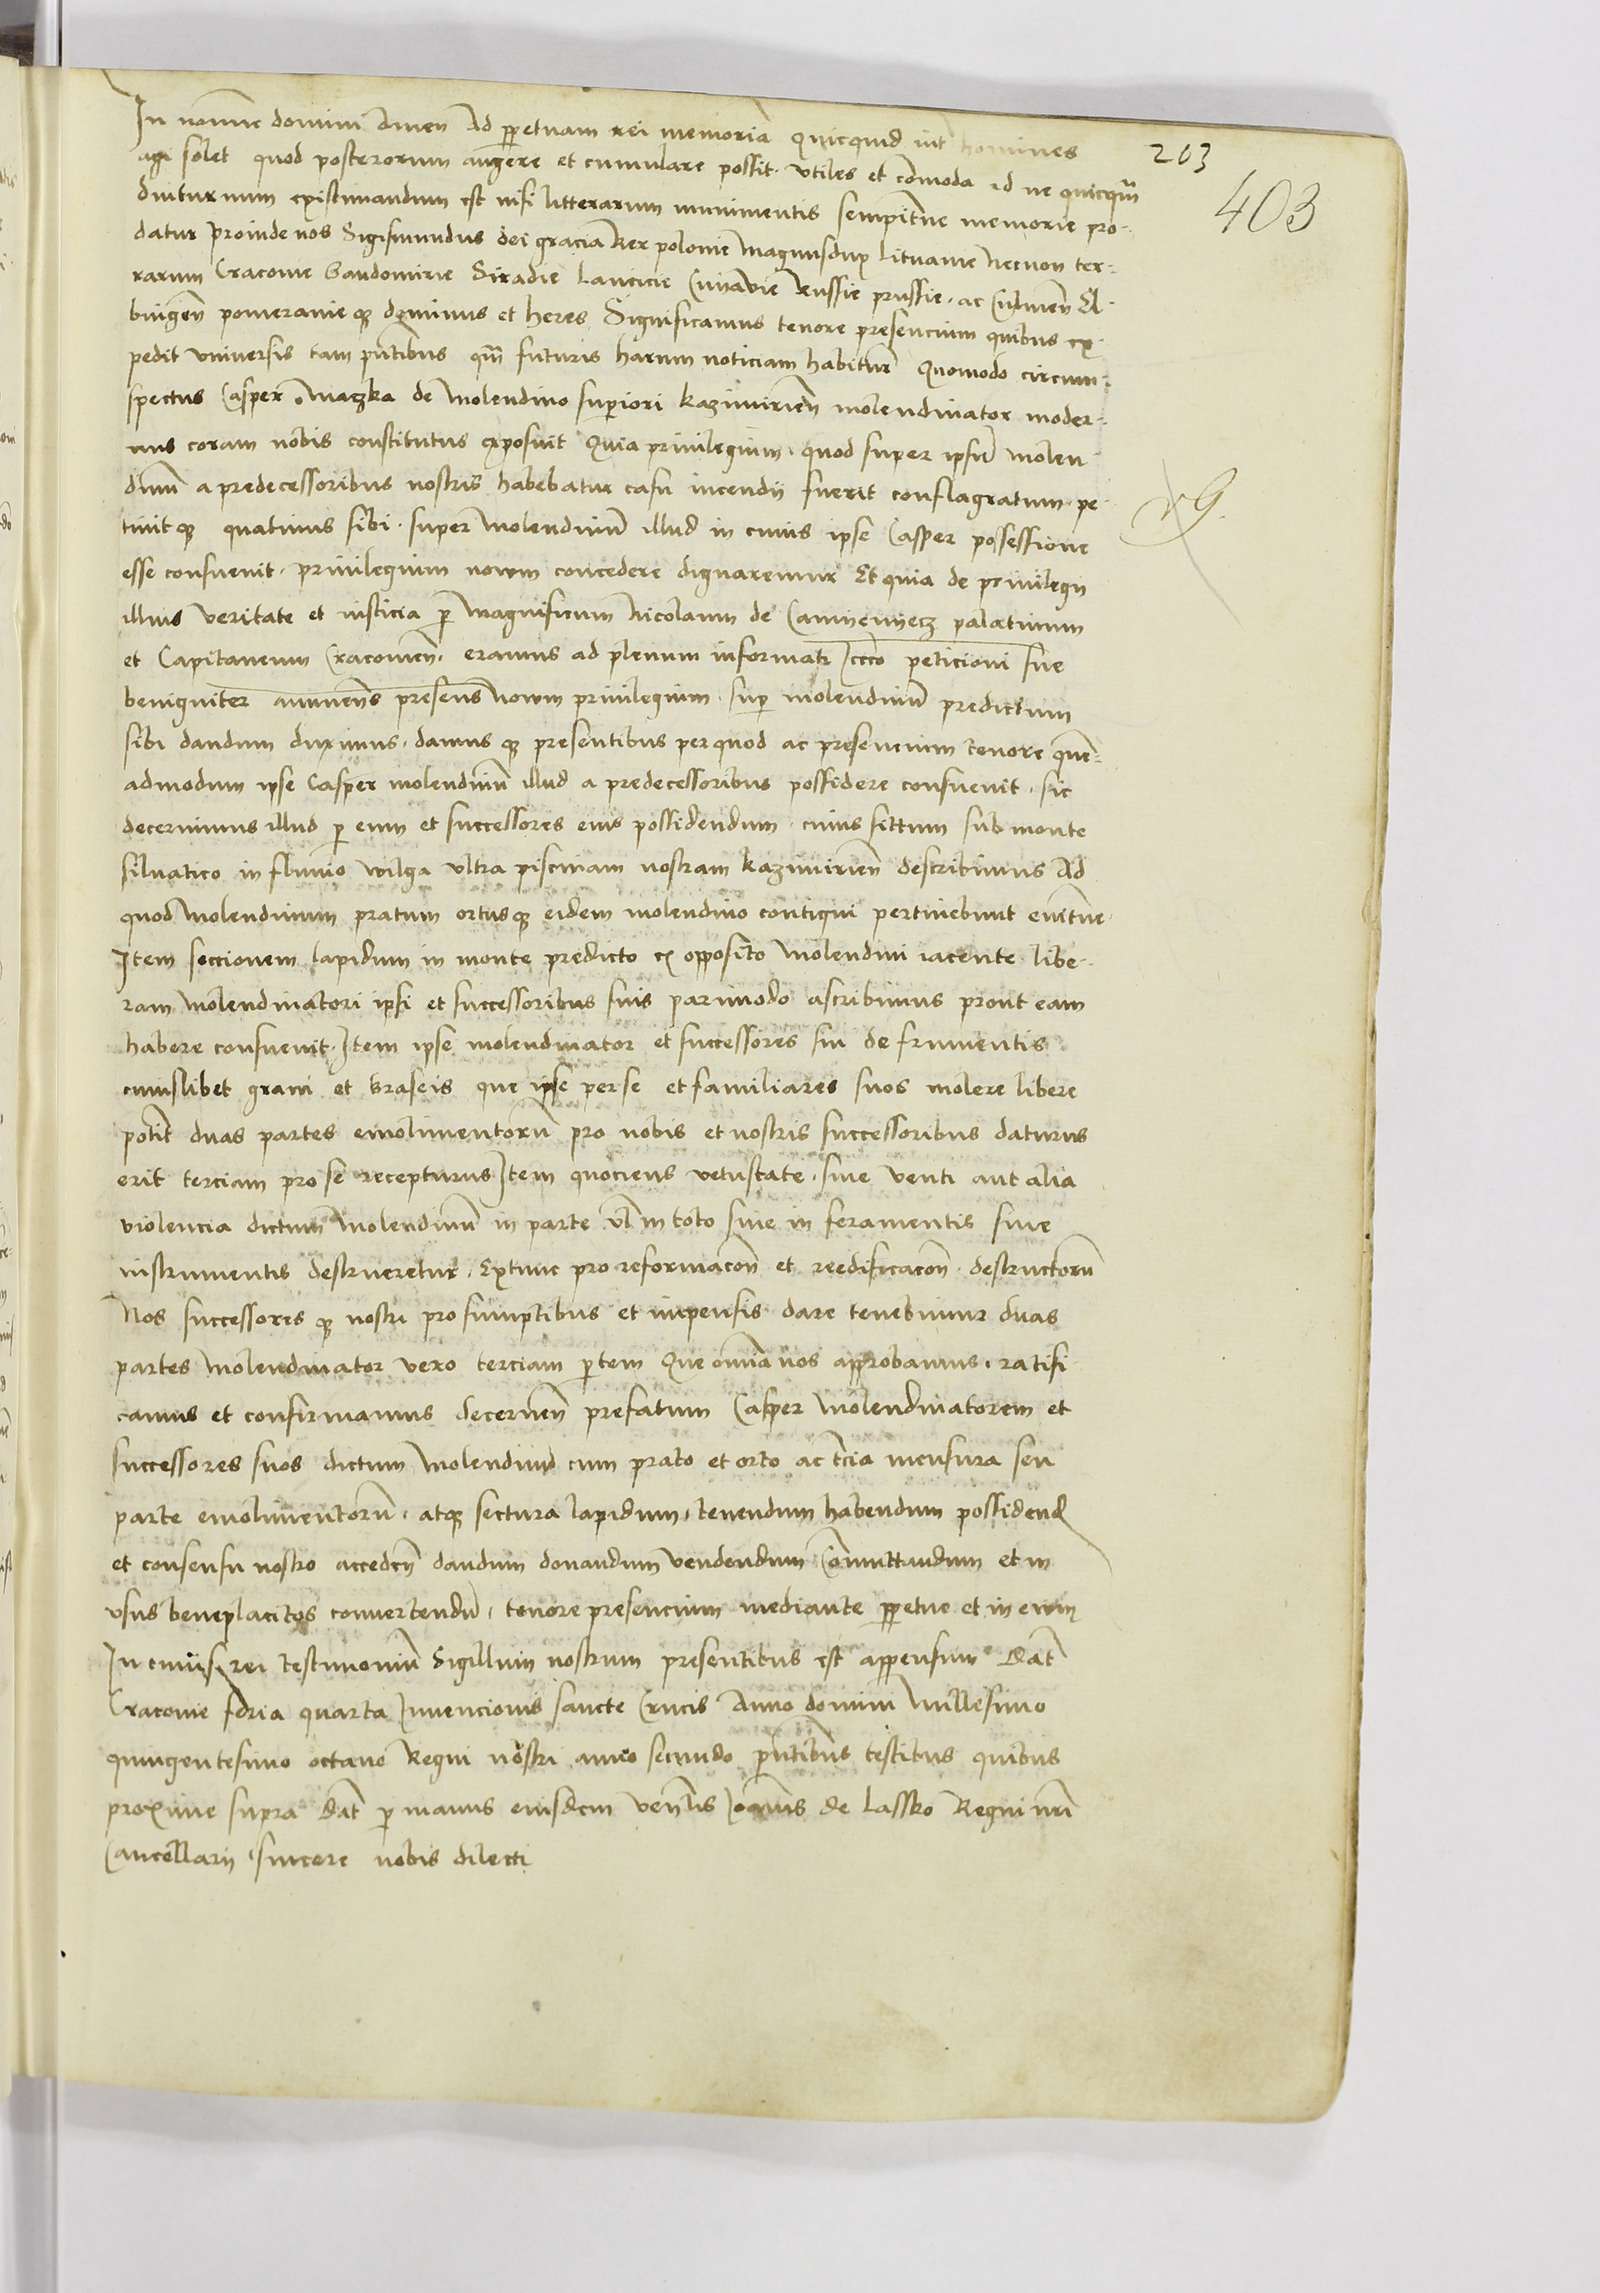 In nomine domini Amen Ad ppetuam rei memoriã Quicquid int homines
agi solet quod posterorum augere et cumulare possit. vtiles et cõmoda id ne quicq̃
diuturnum existimandum est nisi litterarum munimentis sempitne memorie pro-
datur Proinde nos Sigismundus dei gracia Rex polonie Magnusdux Lituanie Necnon ter-
rarum Cracouie Sandomirie Siradie Lancicie Cuiauie Russie prussie. ac Culmeñ El-
bingeñ pomeranieqz dominus et heres Significamus tenore presencium quibus ex-
pedit vniuersis tam pñtibus qm̃ futuris harum noticiam habitur̃ Quomodo circum-
spectus Casper Maczka de Molendino superiori kazimirieñ molendinator moder-
nus coram nobis constitutus exposuit Quia priuilegium. quod super ipsũ molen
dinũ a predecessoribus nostris habebatur casu incendij fuerit conflagratum. pe-
tiuitqz quatinus sibi. super Molendinũ illud in cuius ipse Casper possessione
esse consueuit. priuilegium nowm concedere dignaremur Et quia de priuilegij
illius veritate et iusticia p Magnificum Nicolaum de Camyenyecz palatinum
et Capitaneum Cracouieñ. eramus ad plenum informati Iccco peticioni sue
benigniter annueñs preseñs nowm priuilegium. sup molendinũ predictum
sibi dandum duximus. damusqz presentibus per quod ac presencium tenore quẽ-
admodum ipse Casper molendinũ illud a predecessoribus possidere consueuit. sic
decernimus illud p eum et successores eius possidendum. cuius sittum sub monte
siluatico in fluuio wilga vltra piscinam nostram kazimirieñ describimus Ad
quod Molendinum pratum ortusqz eidem molendino contigui pertinebunt euitne.
Item seccionem lapidum in monte predicto ex opposito Molendini iacente libe-
ram Molendinatori ipsi et successoribus suis parimodo ascribimus prout eam
habere consueuit. Item ipse molendinator et successores sui de frumentis
cuiuslibet grani et braseis que ipse per se et familiares suos molere libere
potit duas partes emolimentorũ pro nobis et nostris successoribus daturus
erit terciam pro se recepturus Item quociens vetustate. siue venti aut alia
violencia dictum Molendinũ in parte vl in toto siue in feramentis siue
instrumentis destrueretur. Extunc pro reformacoñ et reedificacoñ. destructorũ
Nos successoresqz nostri pro sumptibus et impensis dare tenebimur duas
partes Molendinator vero terciam ptem Que omnia nos approbamus. ratifi
camus et confirmamus decerneñ prefatum Casper Molendinatorem et
successores suos dictum Molendinũ cum prato et orto ac tcia mensura seu
parte emolimentorũ. atqz sectura lapidum. tenendum habendum possidend
et consensu nostro accedeñ dandum donandum vendendum Comuttandum et in
vsus beneplacitos conuertendũ. tenore presencium mediante ppetue et in ewm
In cuius rei testimoniũ Sigillum nostrum presentibus est appensum Dat̃
Cracouie fdria quarta Inuencionis sancte Crucis Anno domini Millesimo
quingentesimo octauo Regni nostri anno secundo pñtibus testibus quibus
proxime supra Dat̃ p manus eiusdem Veñlis Ioañis de Lassko Regni nrĩ
Cancellarij sincere nobis dilecti
203
403